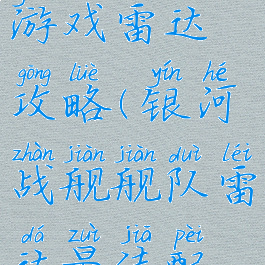 游戏雷达
gōng lüè yín hé
攻略(银河
zhàn jiàn jiàn duì léi
战舰舰队雷
dá zuì jiā pèi
达最佳配